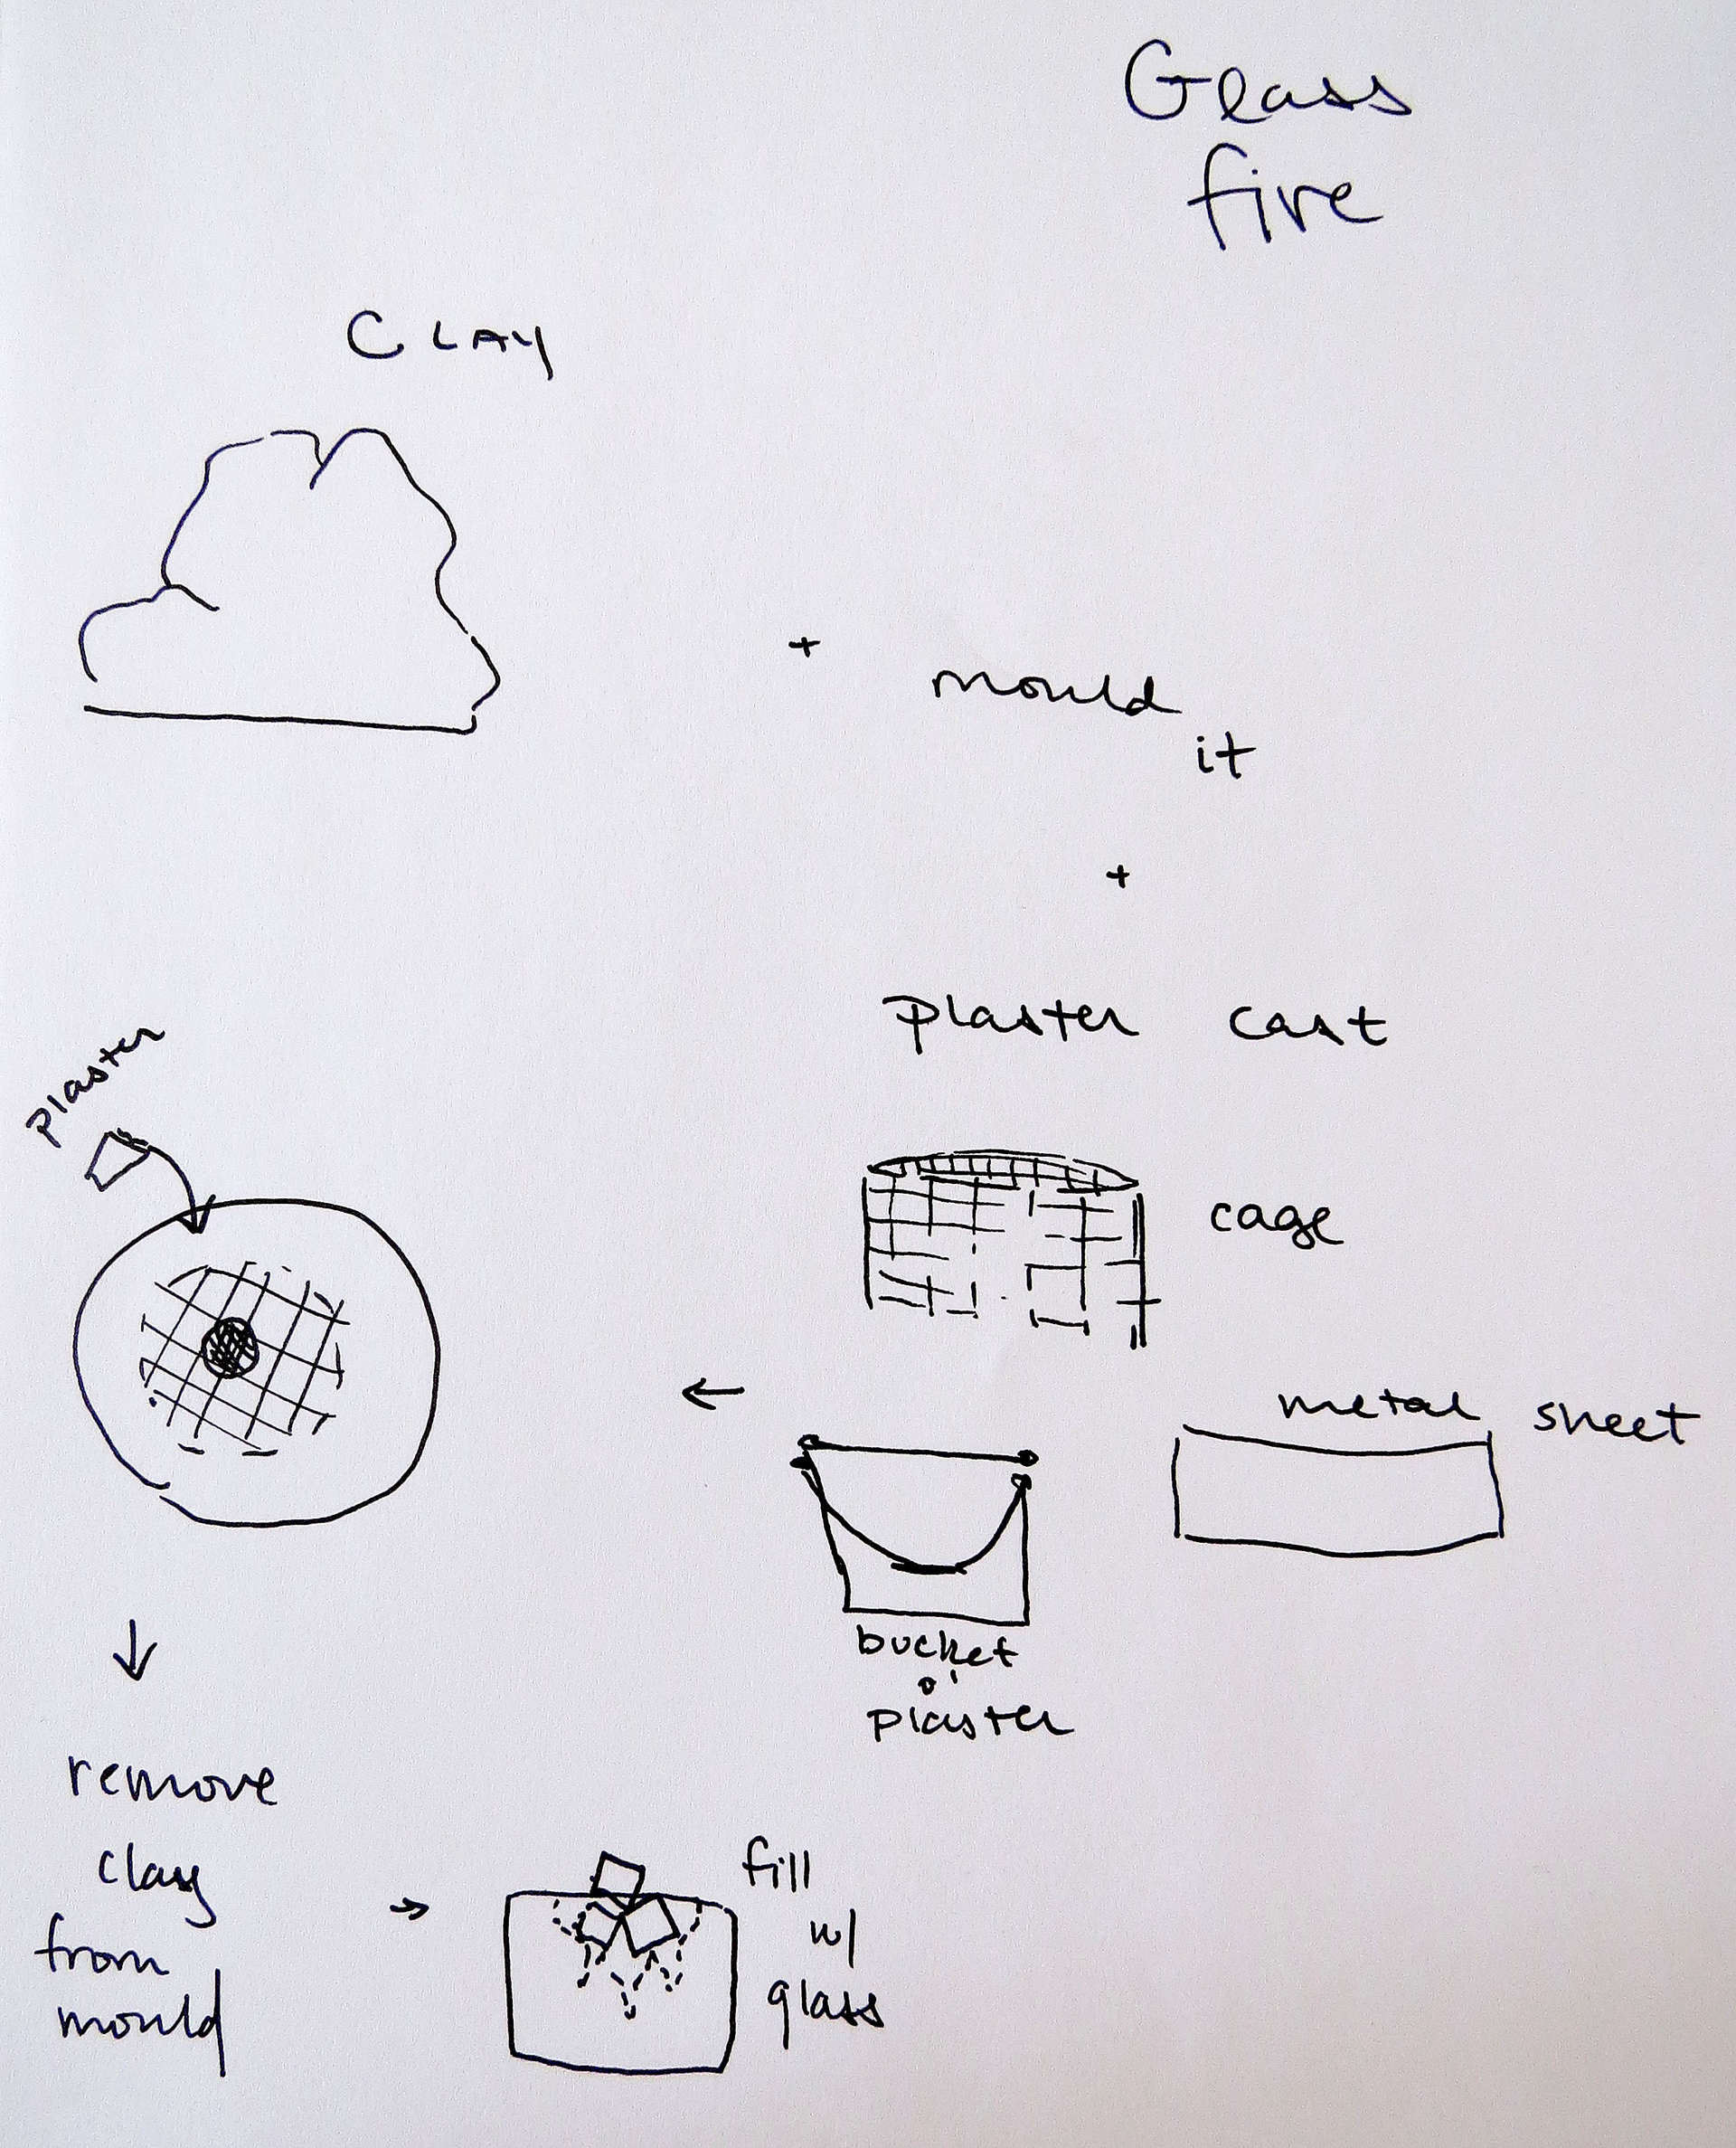 Glass
fire
CLAY
+
mould
it
+
plaster cast
plaster
cage
←
metal sheet
bucket
o'
plaster
↓
remove
clay
from
mould
→
fill
w/
glass